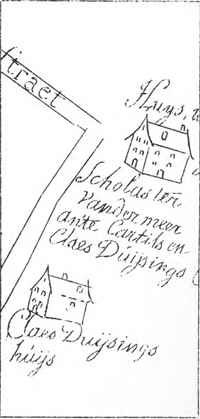 Straet
Huys,
Scholaster
Vandermeer
ante Cartils en
Claes Duijsings
Claes Duijsings
huijs